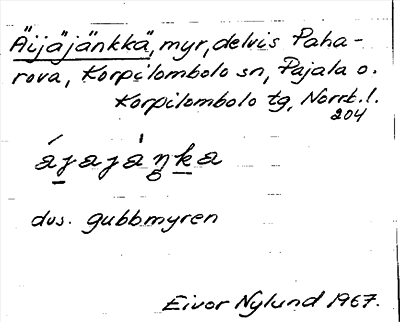 Äijäjänkkä, myr, delvis Paha-
rova, Korpilombolo sn, Pajala o.
Korpilombolo tg, Norrb. l.
204
dvs. gubbmyren
Eivor Nylund 1967.